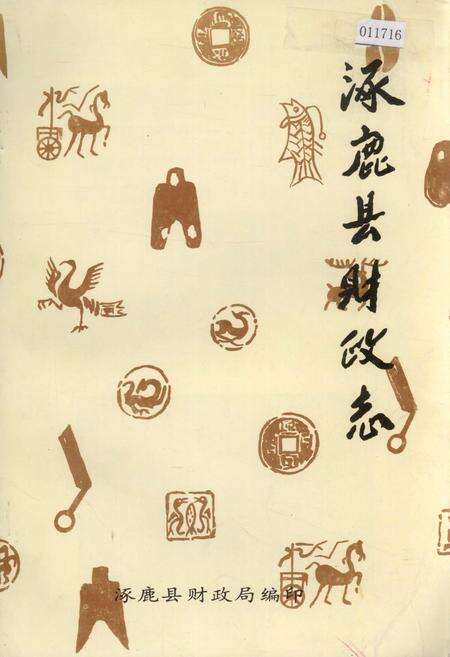 011716
涿鹿县财政志
涿鹿县财政局编印